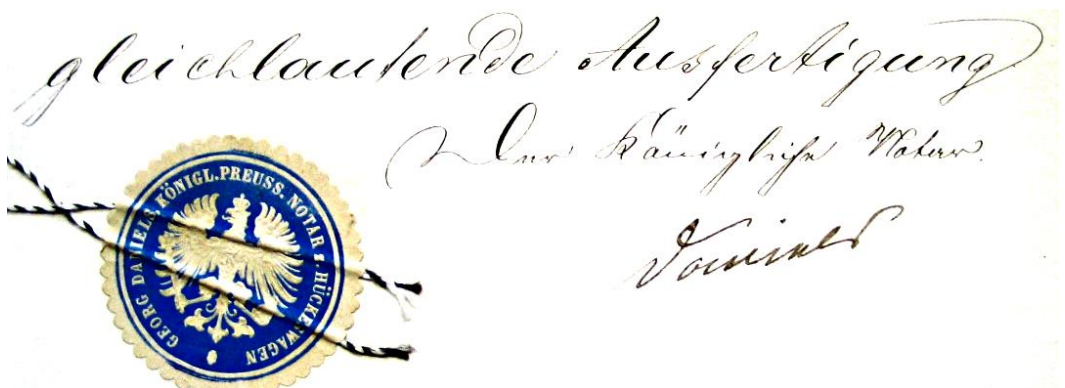 gleichlautende Ausfertigung
Der Königliche Notar.
Daniels
GEORG DANIELS, KÖNIGL. PREUSS. NOTAR z. HÜCKESWAGEN